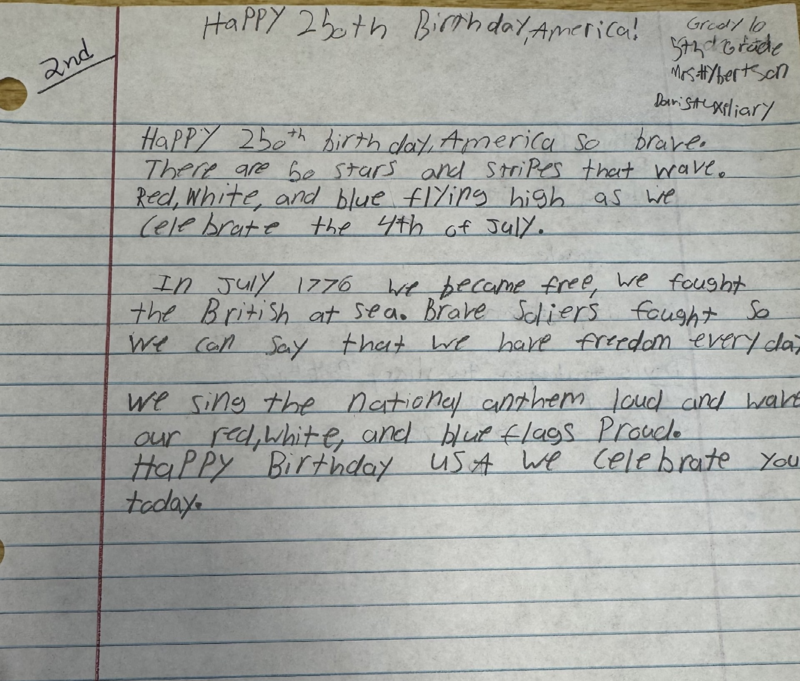 Happy 250th Birthday, America!
Grady 10
5th Grade
Mrs Hybertson
2nd
Happy 250th birthday, America so brave.
There are 50 stars and stripes that wave.
Red, White, and blue flying high as we
celebrate the 4th of July.
In July 1776 we became free, we fought
the British at sea. Brave Soliers fought so
we can say that we have freedom everyday
We sing the national anthem loud and wave
our red, white, and blue flags Proud.
Happy Birthday USA we celebrate you
today.